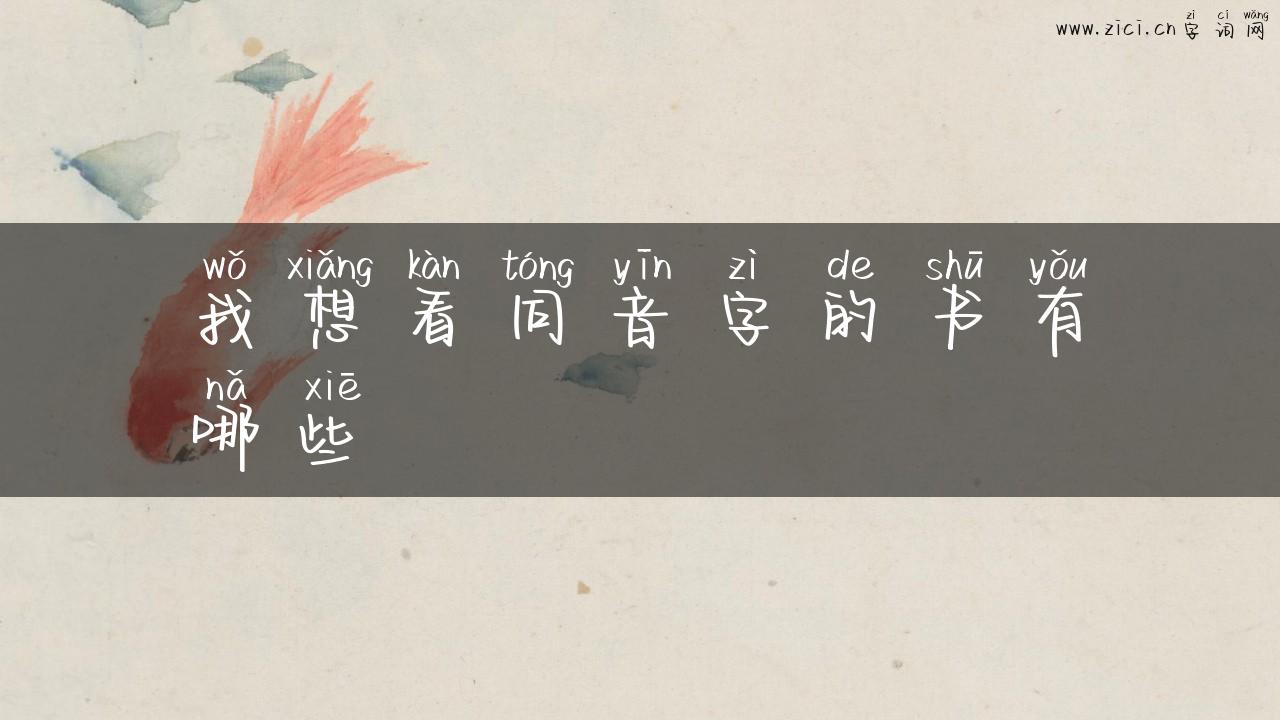 zì cí wǎng
www.zici.cn 字词网
wǒ xiǎng kàn tóng yīn zì de shū yǒu
我想看同音字的书有
nǎ xiē
哪些